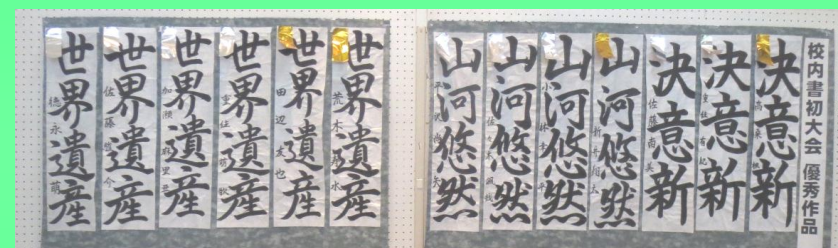 校内書初大会 優秀作品
決意新
決意新
決意新
佐藤
山河悠然
山河悠然
小林
山河悠然
山河悠然
世界遺産
荒木
世界遺産
田辺
世界遺産
世界遺産
世界遺産
佐藤
世界遺産
徳永